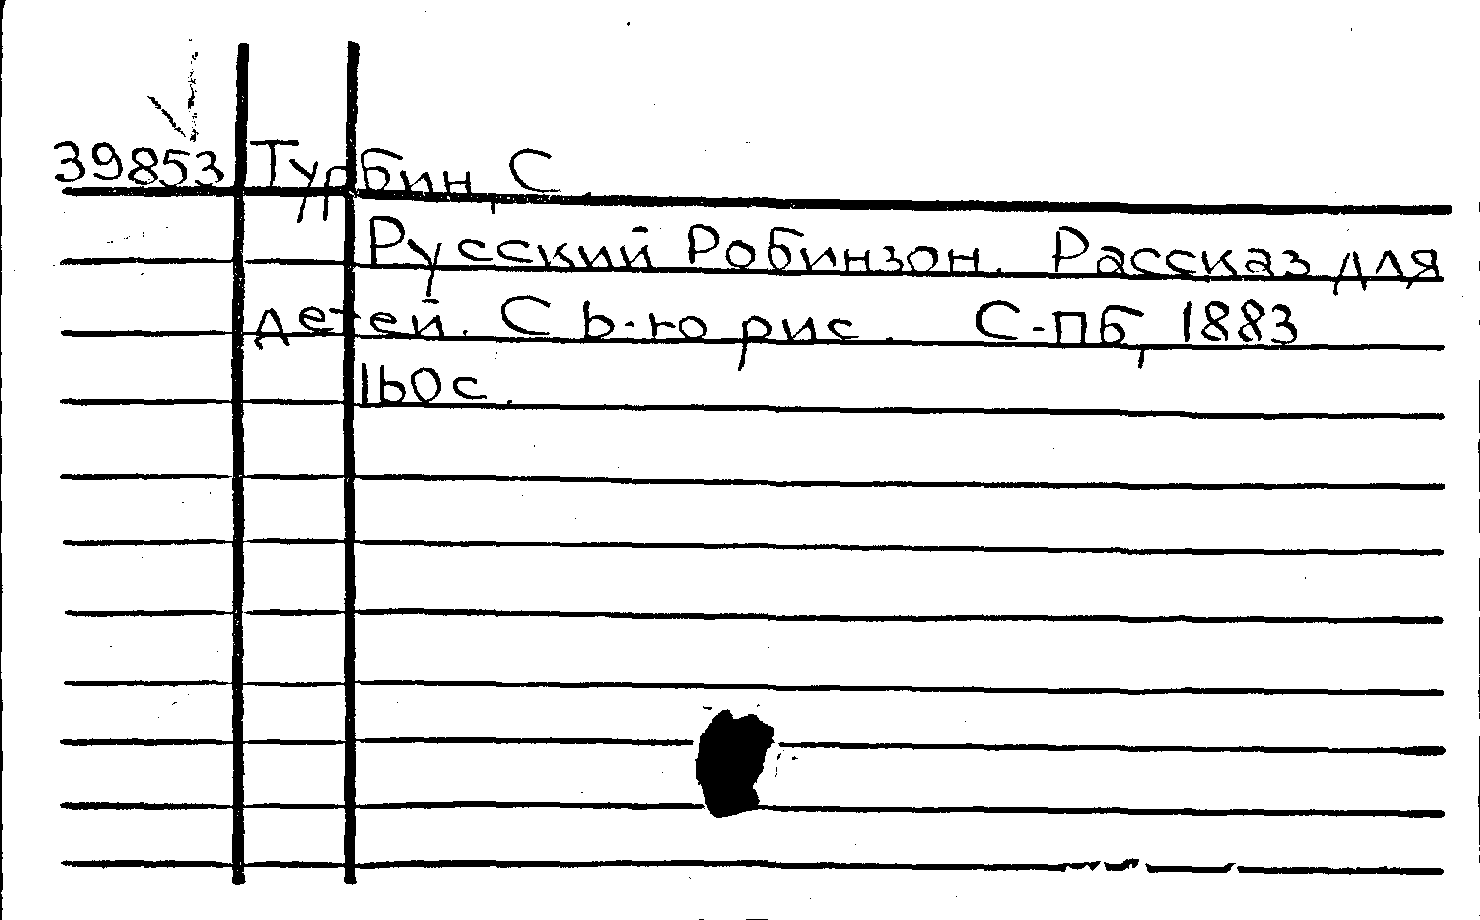 39853 Турбин, С.
Русский Робинзон. Рассказ для
детей. С 6-ю рис. С-ПБ, 1883
160 с.